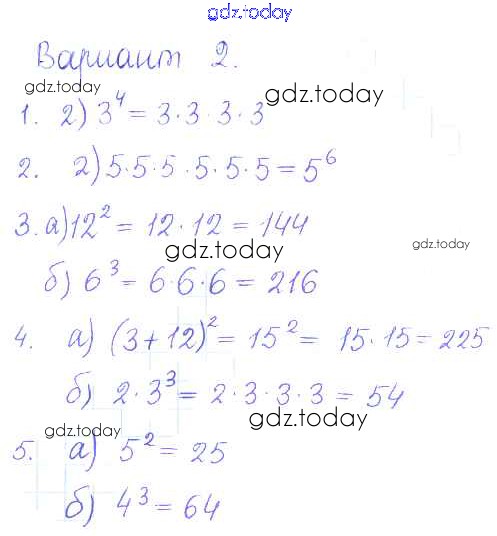 gdz.today
Вариант 2.
gdz.today
gdz.today
1. 2) 3⁴ = 3·3·3·3
2. 2) 5·5·5·5·5·5 = 5⁶
3. а) 12² = 12·12 = 144
gdz.today
gdz.today
б) 6³ = 6·6·6 = 216
4. а) (3+12)² = 15² = 15·15 = 225
б) 2·3³ = 2·3·3·3 = 54
gdz.today
gdz.today
5. а) 5² = 25
б) 4³ = 64